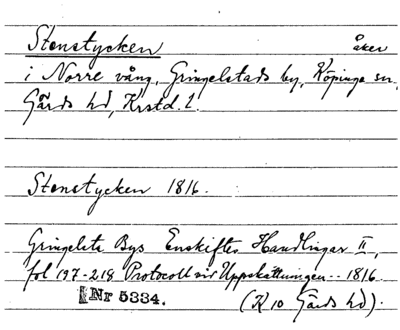 Stenstycken åker
i Norre vång, Gringelstads by, Köpinge sn,
Gärds hd, Krstd. l.
Stenstycken 1816.
Gringelsta Bys Enskiftes Handlingar II,
fol 197-218 Protocoll vid Uppskattningen -- 1816.
Nr 5334. (K 10 Gärds hd).